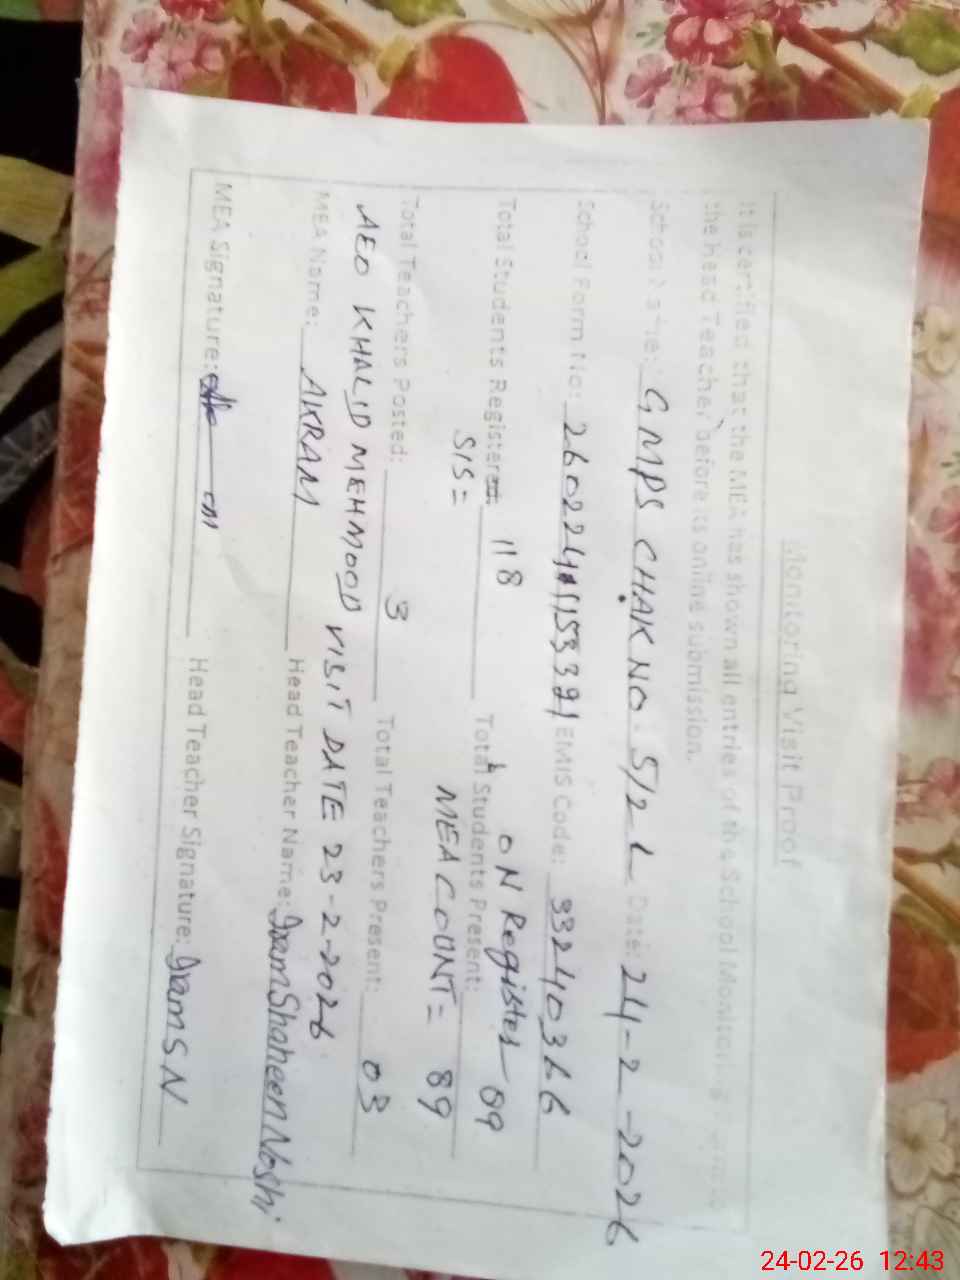 Monitoring Visit Proof
It is certified that the MEA has shown all entries of the School Monitoring
the Head Teacher before its online submission.
School Name: GMPS CHAK NO. 5/2 L Date: 24-2-2026
School Form No: EMIS Code: 33240366
Total Students Registered: 118 Total Students Present: ON Register 89
SIS= MEA COUNT= 89
Total Teachers Posted: 3 Total Teachers Present: 03
AEO KHALID MEHMOOD VISIT DATE 23-2-2026
MEA Name: AKRAM Head Teacher Name: Iram Shaheen Noshi
MEA Signature: Head Teacher Signature: Iram S.N
24-02-26 12:43